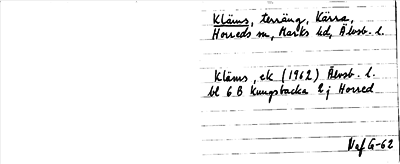 Kläms, terräng, Kärra,
Horreds sn, Marks hd, Älvsb. l.
Kläms, ek (1962) Älvsb. l.
bl 6 B Kungsbacka 2 j Horred
G-62